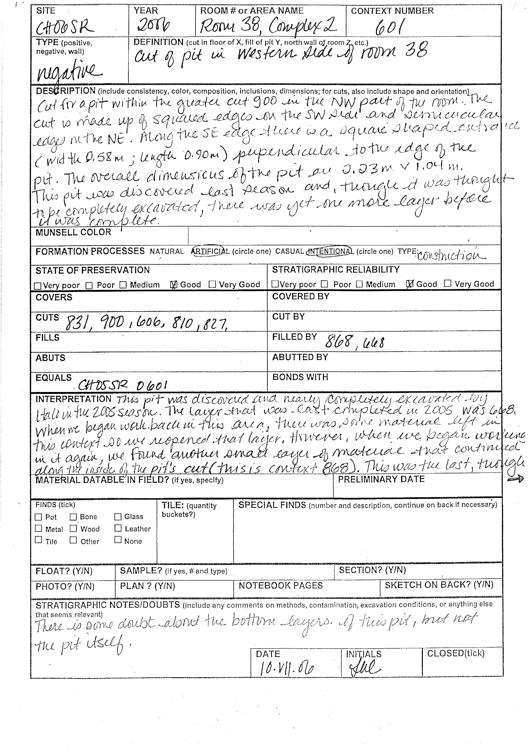 SITE YEAR ROOM # or AREA NAME CONTEXT NUMBER
CHO6SR 2006 Room 38, Complex 2 601
TYPE (positive, negative, wall) DEFINITION (cut in floor of X, fill of pit Y, north wall of room Z, etc.)
negative cut of pit in western side of room 38
DESCRIPTION (include consistency, color, composition, inclusions, dimensions; for cuts, also include shape and orientation)
Cut for a pit within the greater cut 900 in the NW part of the room. The
cut is made up of squared edges on the SW side and semicircular
edges in the NE. Along the SE edge there is a square shaped entrance
(width 0.58m; length 0.90m) perpendicular to the edge of the
pit. The overall dimensions of the pit are 2.23m x 1.04 m.
This pit was discovered last season and, though it was thought
to be completely excavated, there was yet one more layer before
it was complete.
MUNSELL COLOR
FORMATION PROCESSES NATURAL ARTIFICIAL (circle one) CASUAL INTENTIONAL (circle one) TYPE: construction
STATE OF PRESERVATION STRATIGRAPHIC RELIABILITY
Very poor Poor Medium Good Very Good Very poor Poor Medium Good Very Good
COVERS COVERED BY
CUTS 831, 900, 606, 810, 827, CUT BY
FILLS FILLED BY 868, 668
ABUTS ABUTTED BY
EQUALS CHO5SR 0601 BONDS WITH
INTERPRETATION This pit was discovered and nearly completely excavated by
Halo in the 2005 season. The layer that was last completed in 2005 was 668.
When we began work back in this area, there was some material left in
this context so we reopened that layer. However, when we began working
in it again, we found another small layer of material that continued
along the inside of the pit's cut (this is context 868). This was the last, though
MATERIAL DATABLE IN FIELD? (if yes, specify) PRELIMINARY DATE →
FINDS (tick) TILE: (quantity buckets?) SPECIAL FINDS (number and description, continue on back if necessary)
Pot Bone Glass
Metal Wood Leather
Tile Other None
FLOAT? (Y/N) SAMPLE? (if yes, # and type) SECTION? (Y/N)
PHOTO? (Y/N) PLAN? (Y/N) NOTEBOOK PAGES SKETCH ON BACK? (Y/N)
STRATIGRAPHIC NOTES/DOUBTS (include any comments on methods, contamination, excavation conditions, or anything else
that seems relevant)
There is some doubt about the bottom layers of this pit, but not
the pit itself.
DATE INITIALS CLOSED(tick)
10.VII.06